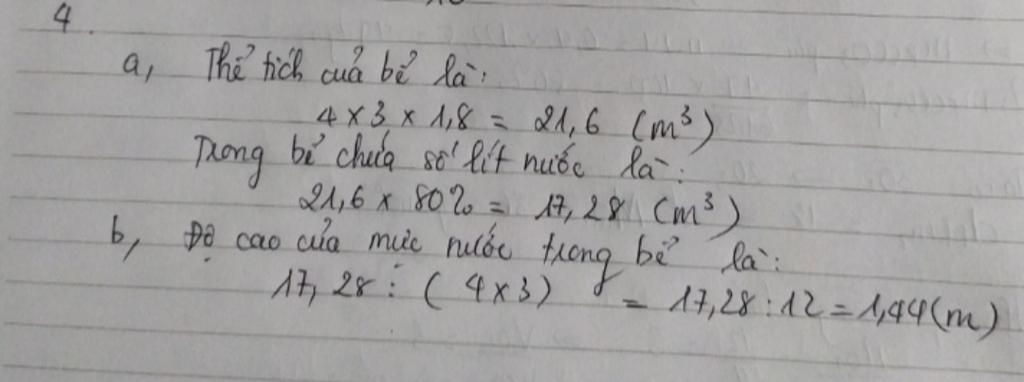 4.
a, Thể tích của bể là:
4 x 3 x 1,8 = 21,6 (m³)
Trong bể chứa số lít nước là:
21,6 x 80% = 17,28 (m³)
b, Độ cao của mức nước trong bể là:
17,28 : (4x3) = 17,28 : 12 = 1,44 (m)